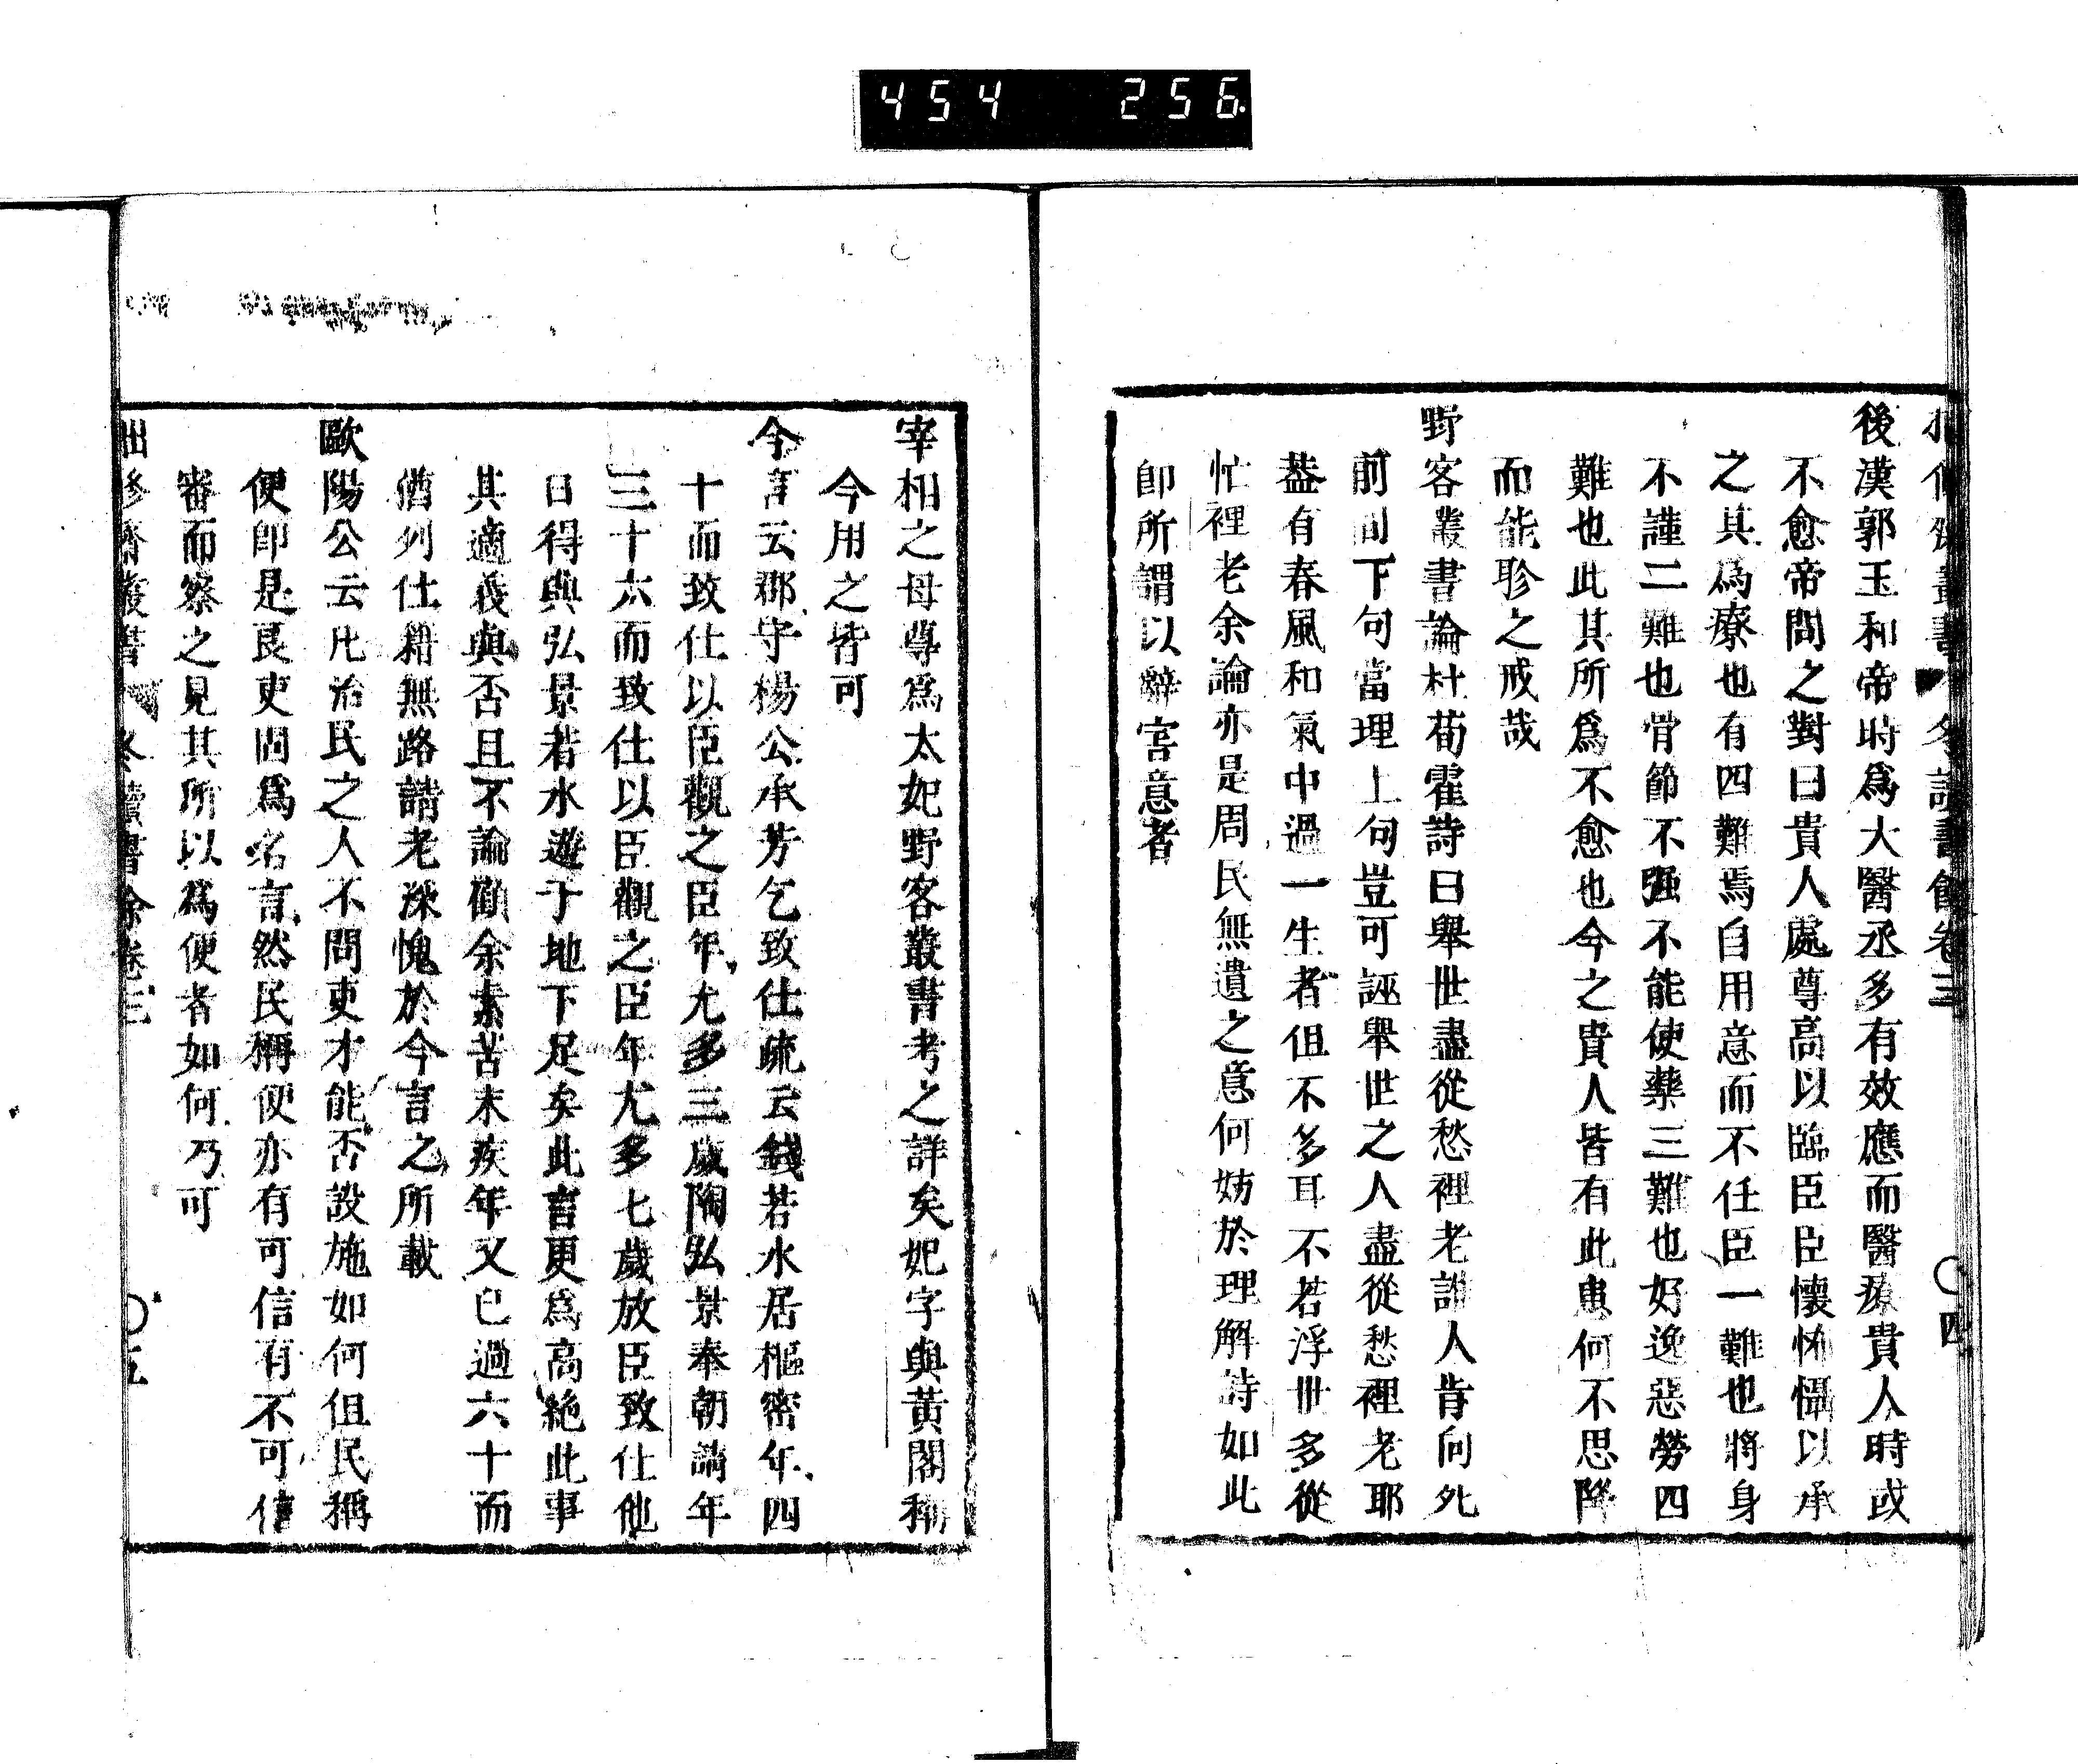 454 256
後漢郭玉和帝時爲大醫丞多有效應而醫療貴人時或
不愈帝問之對曰貴人處尊高以臨臣臣懷怖懾以承
之其爲療也有四難焉自用意而不任臣一難也將身
不謹二難也骨節不强不能使藥三難也好逸惡勞四
難也此其所爲不愈也今之貴人皆有此患何不思降
而能聄之戒哉
野客叢書論杜荀霍詩曰舉世盡從愁裡老誰人肯向死
前間下句當理上句豈可誣舉世之人盡從愁裡老耶
葢有春風和氣中過一生者但不多耳不若浮世多從
忙裡老余論亦是周民無遺之意何妨於理解詩如此
卽所謂以辭害意者
四
宰相之母尊爲太妃野客叢書考之詳矣妃字與黃閣稱
今用之皆可
今言云郡守楊公承芳乞致仕疏云錢若水居樞密年四
十而致仕以臣觀之臣年尤多三歲陶弘景奉朝請年
三十六而致仕以臣觀之臣年尤多七歲放臣致仕他
日得與弘景若水遊于地下足矣此言更爲高絶此事
其適義與否且不論顧余素苦末疾年又已過六十而
猶列仕籍無路請老深愧於今言之所載
歐陽公云凡治民之人不問吏才能否設施如何但民稱
便卽是良吏固爲名言然民稱便亦有可信有不可信
審而察之見其所以爲便者如何乃可
拙修齋叢書 冬讀書餘卷三 五